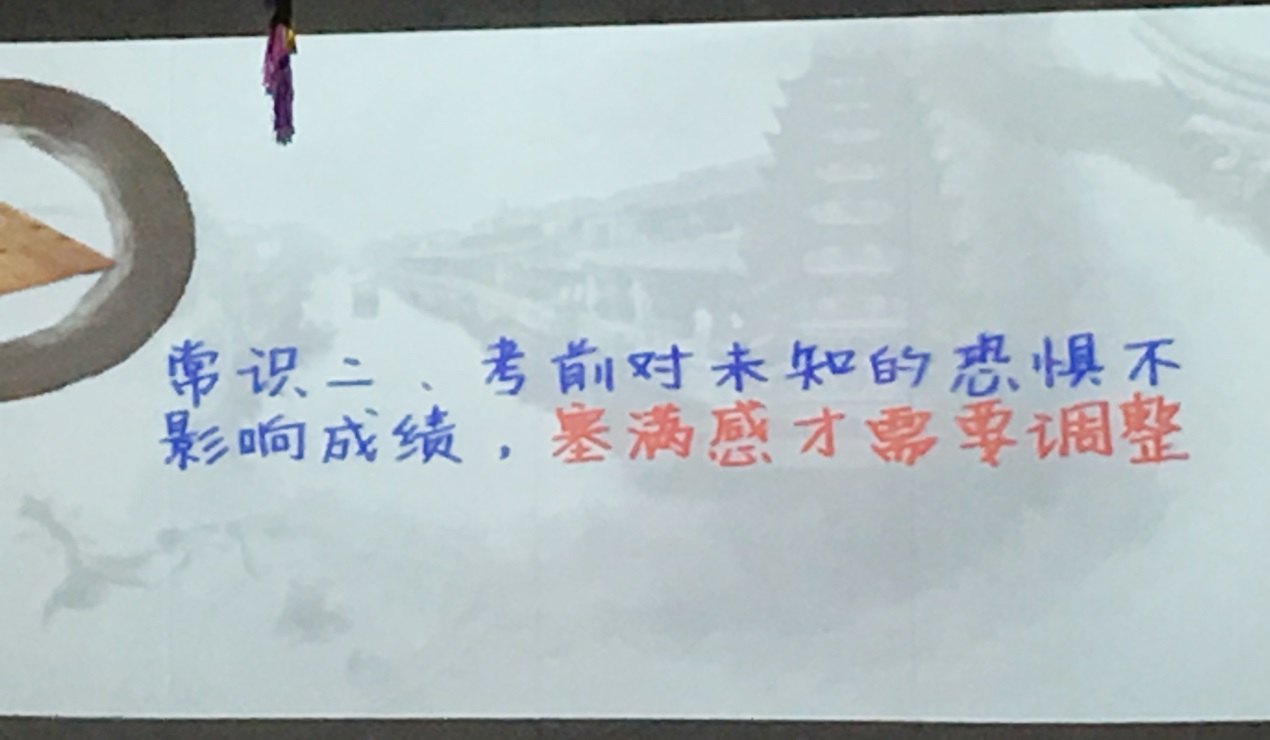 常识二、考前对未知的恐惧不
影响成绩，塞满感才需要调整